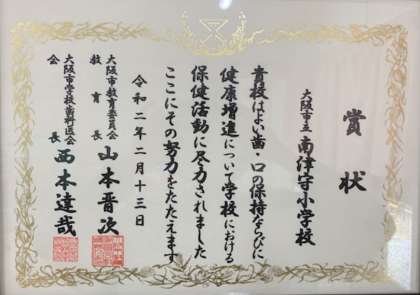 賞状
大阪市立南津守小学校
貴校はよい歯・口の保持ならびに
健康増進について学校における
保健活動に尽力されました
ここにその努力をたたえます
令和二年二月十三日
大阪市教育委員会
教育長 山本晋次
大阪市学校歯科医会
会長 西本達哉